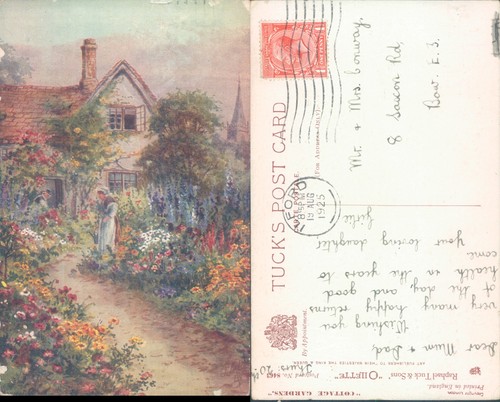 TUCK'S POST CARD
(FOR ADDRESS ONLY)
Mr. & Mrs. Conway.
8 Saxon Rd,
Bow. E. 3.
ILFORD
8.15 PM
19 AUG
1925
Thurs. 20th
Dear Mum & Dad,
Wishing you
very many happy returns
of the day and good
health in the years to
come
your loving daughter
Girlie
By Appointment.
ART PUBLISHERS TO THEIR MAJESTIES THE KING & QUEEN
Raphael Tuck & Sons' "OILETTE"
"COTTAGE GARDENS."
Printed in England.